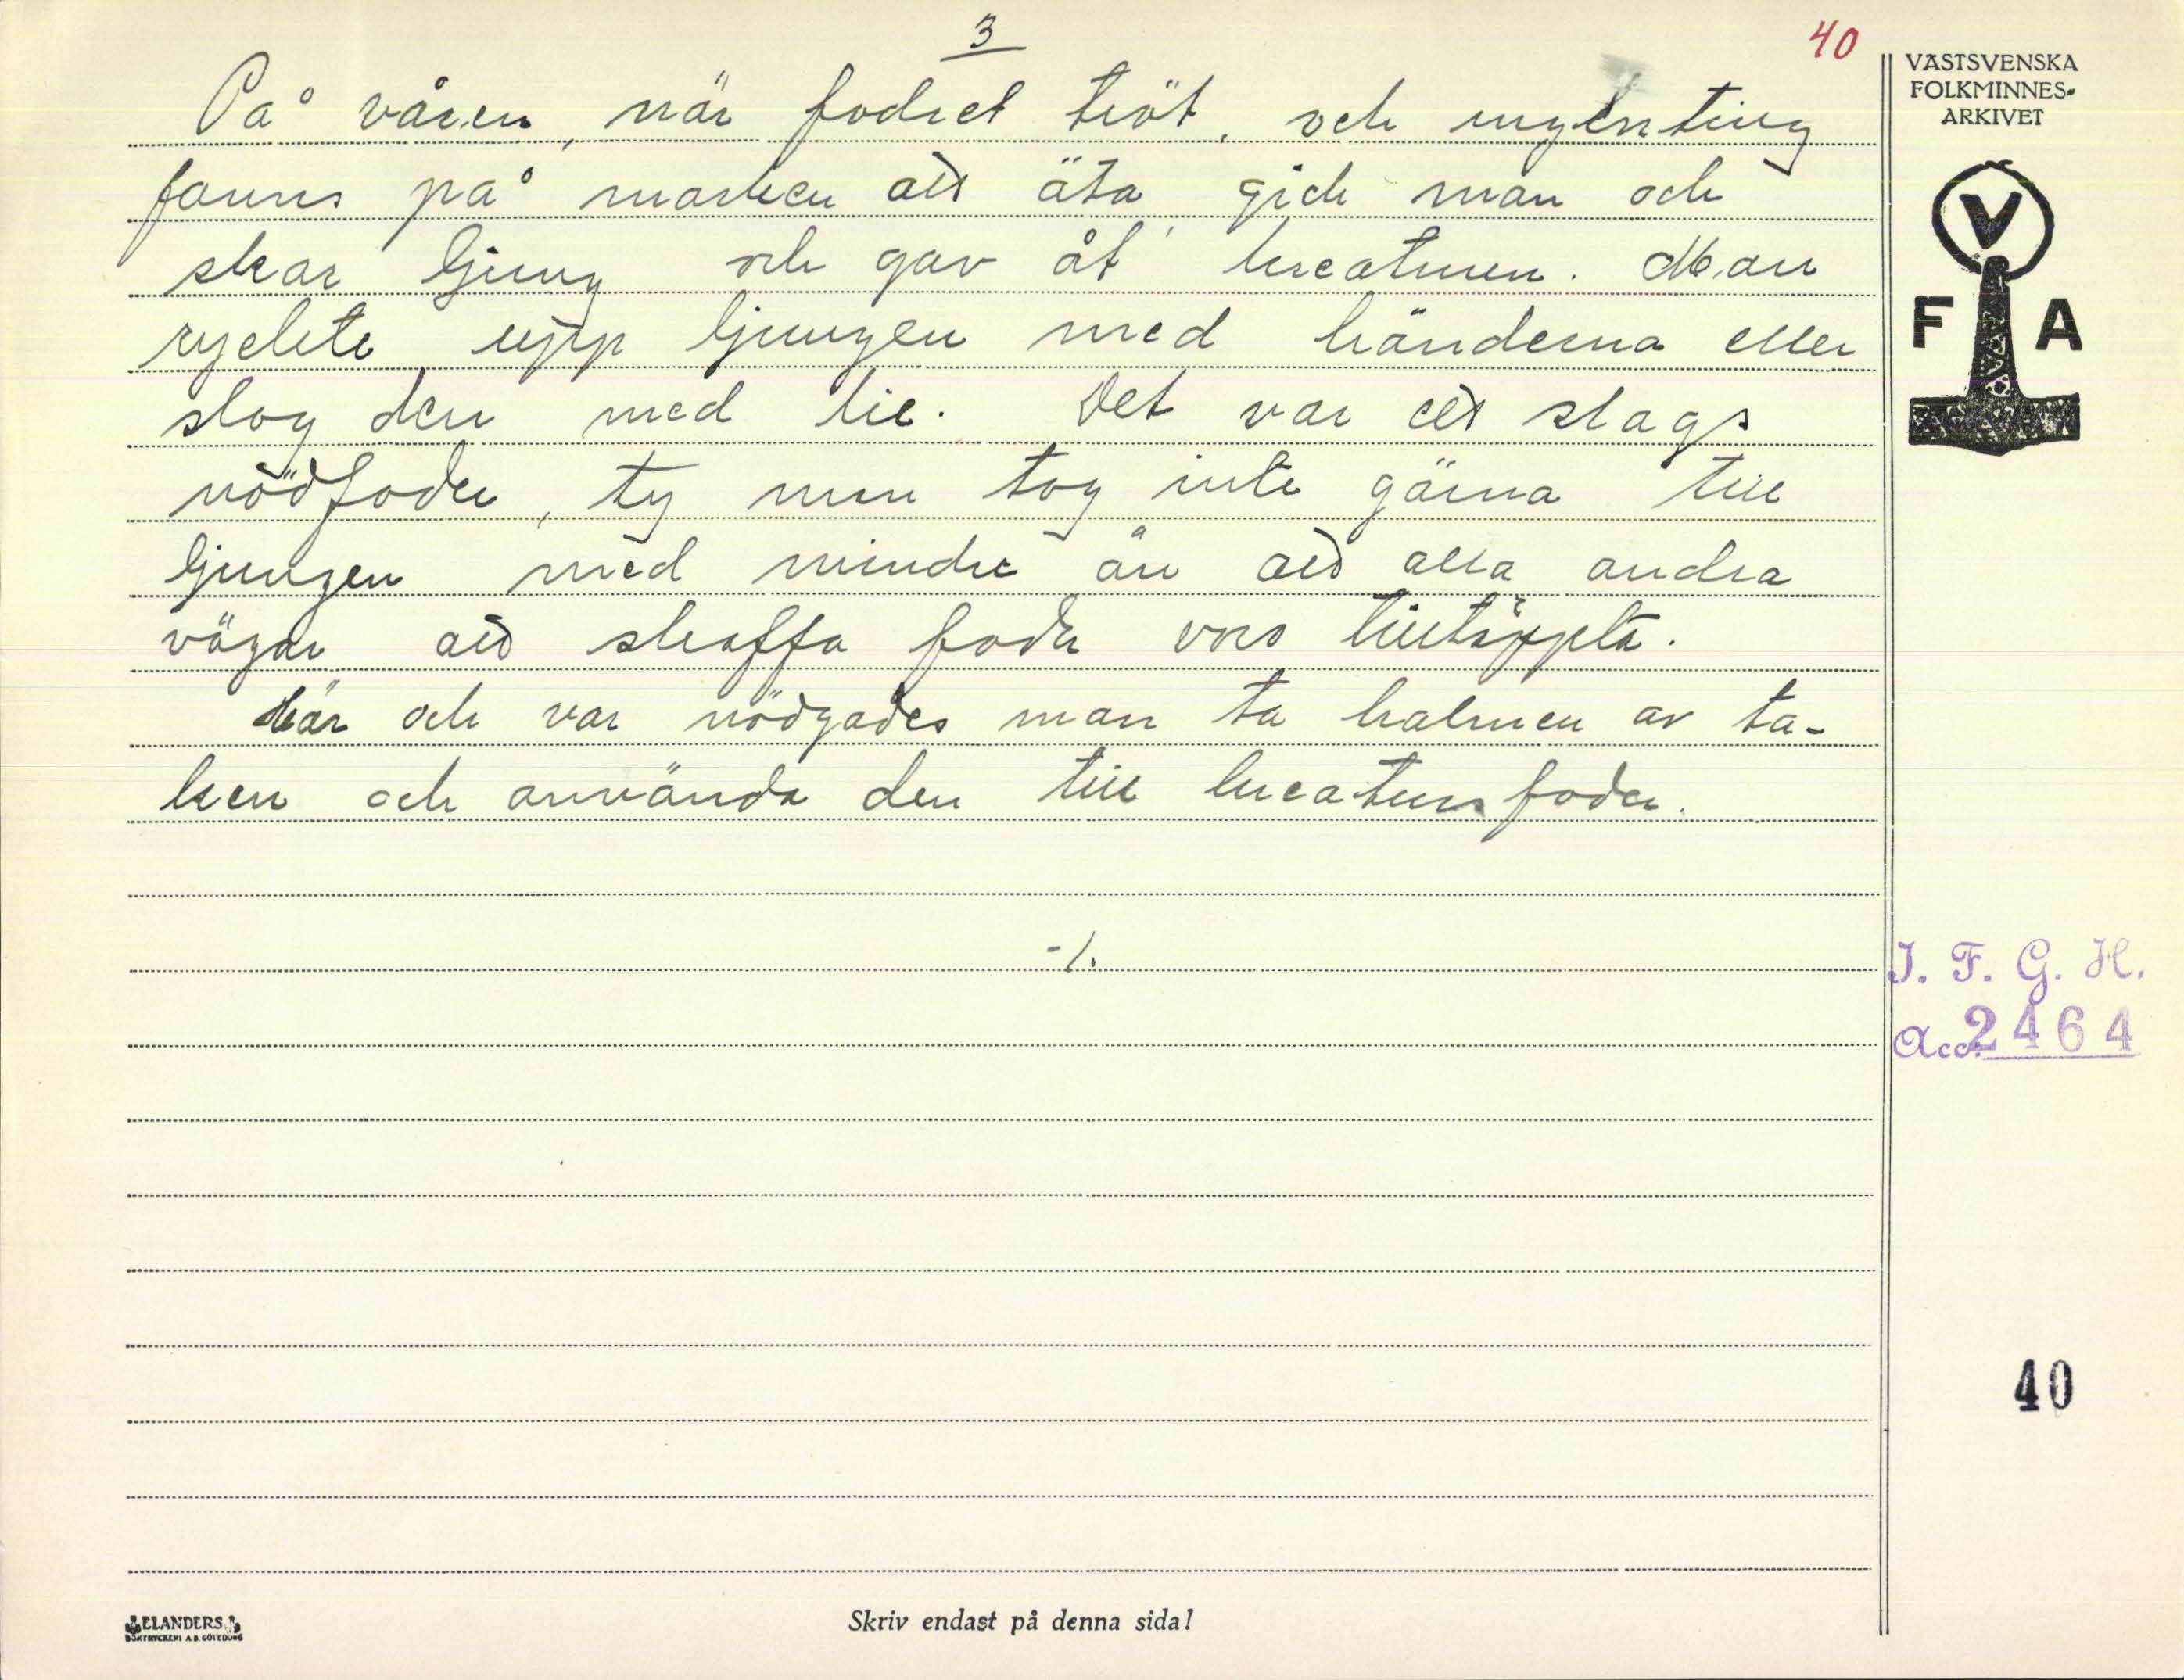 3
40
På våren, när fodret tröt, och ingenting
fanns på marken att äta, gick man och
skar ljung och gav åt kreaturen. Man
ryckte upp ljungen med händerna eller
slog den med lie. Det var ett slags
nödfoder, ty man tog inte gärna till
ljungen med mindre än att alla andra
vägar att skaffa foder voro tilltäppta.
Här och var nödgades man ta halmen av ta-
ken och använda den till kreatursfoder.
-/.
VÄSTSVENSKA
FOLKMINNES-
ARKIVET
V
F A
I. F. G. H.
Acc. 2464
40
ELANDERS
BOKTRYCKERI A.B. GÖTEBORG
Skriv endast på denna sida!